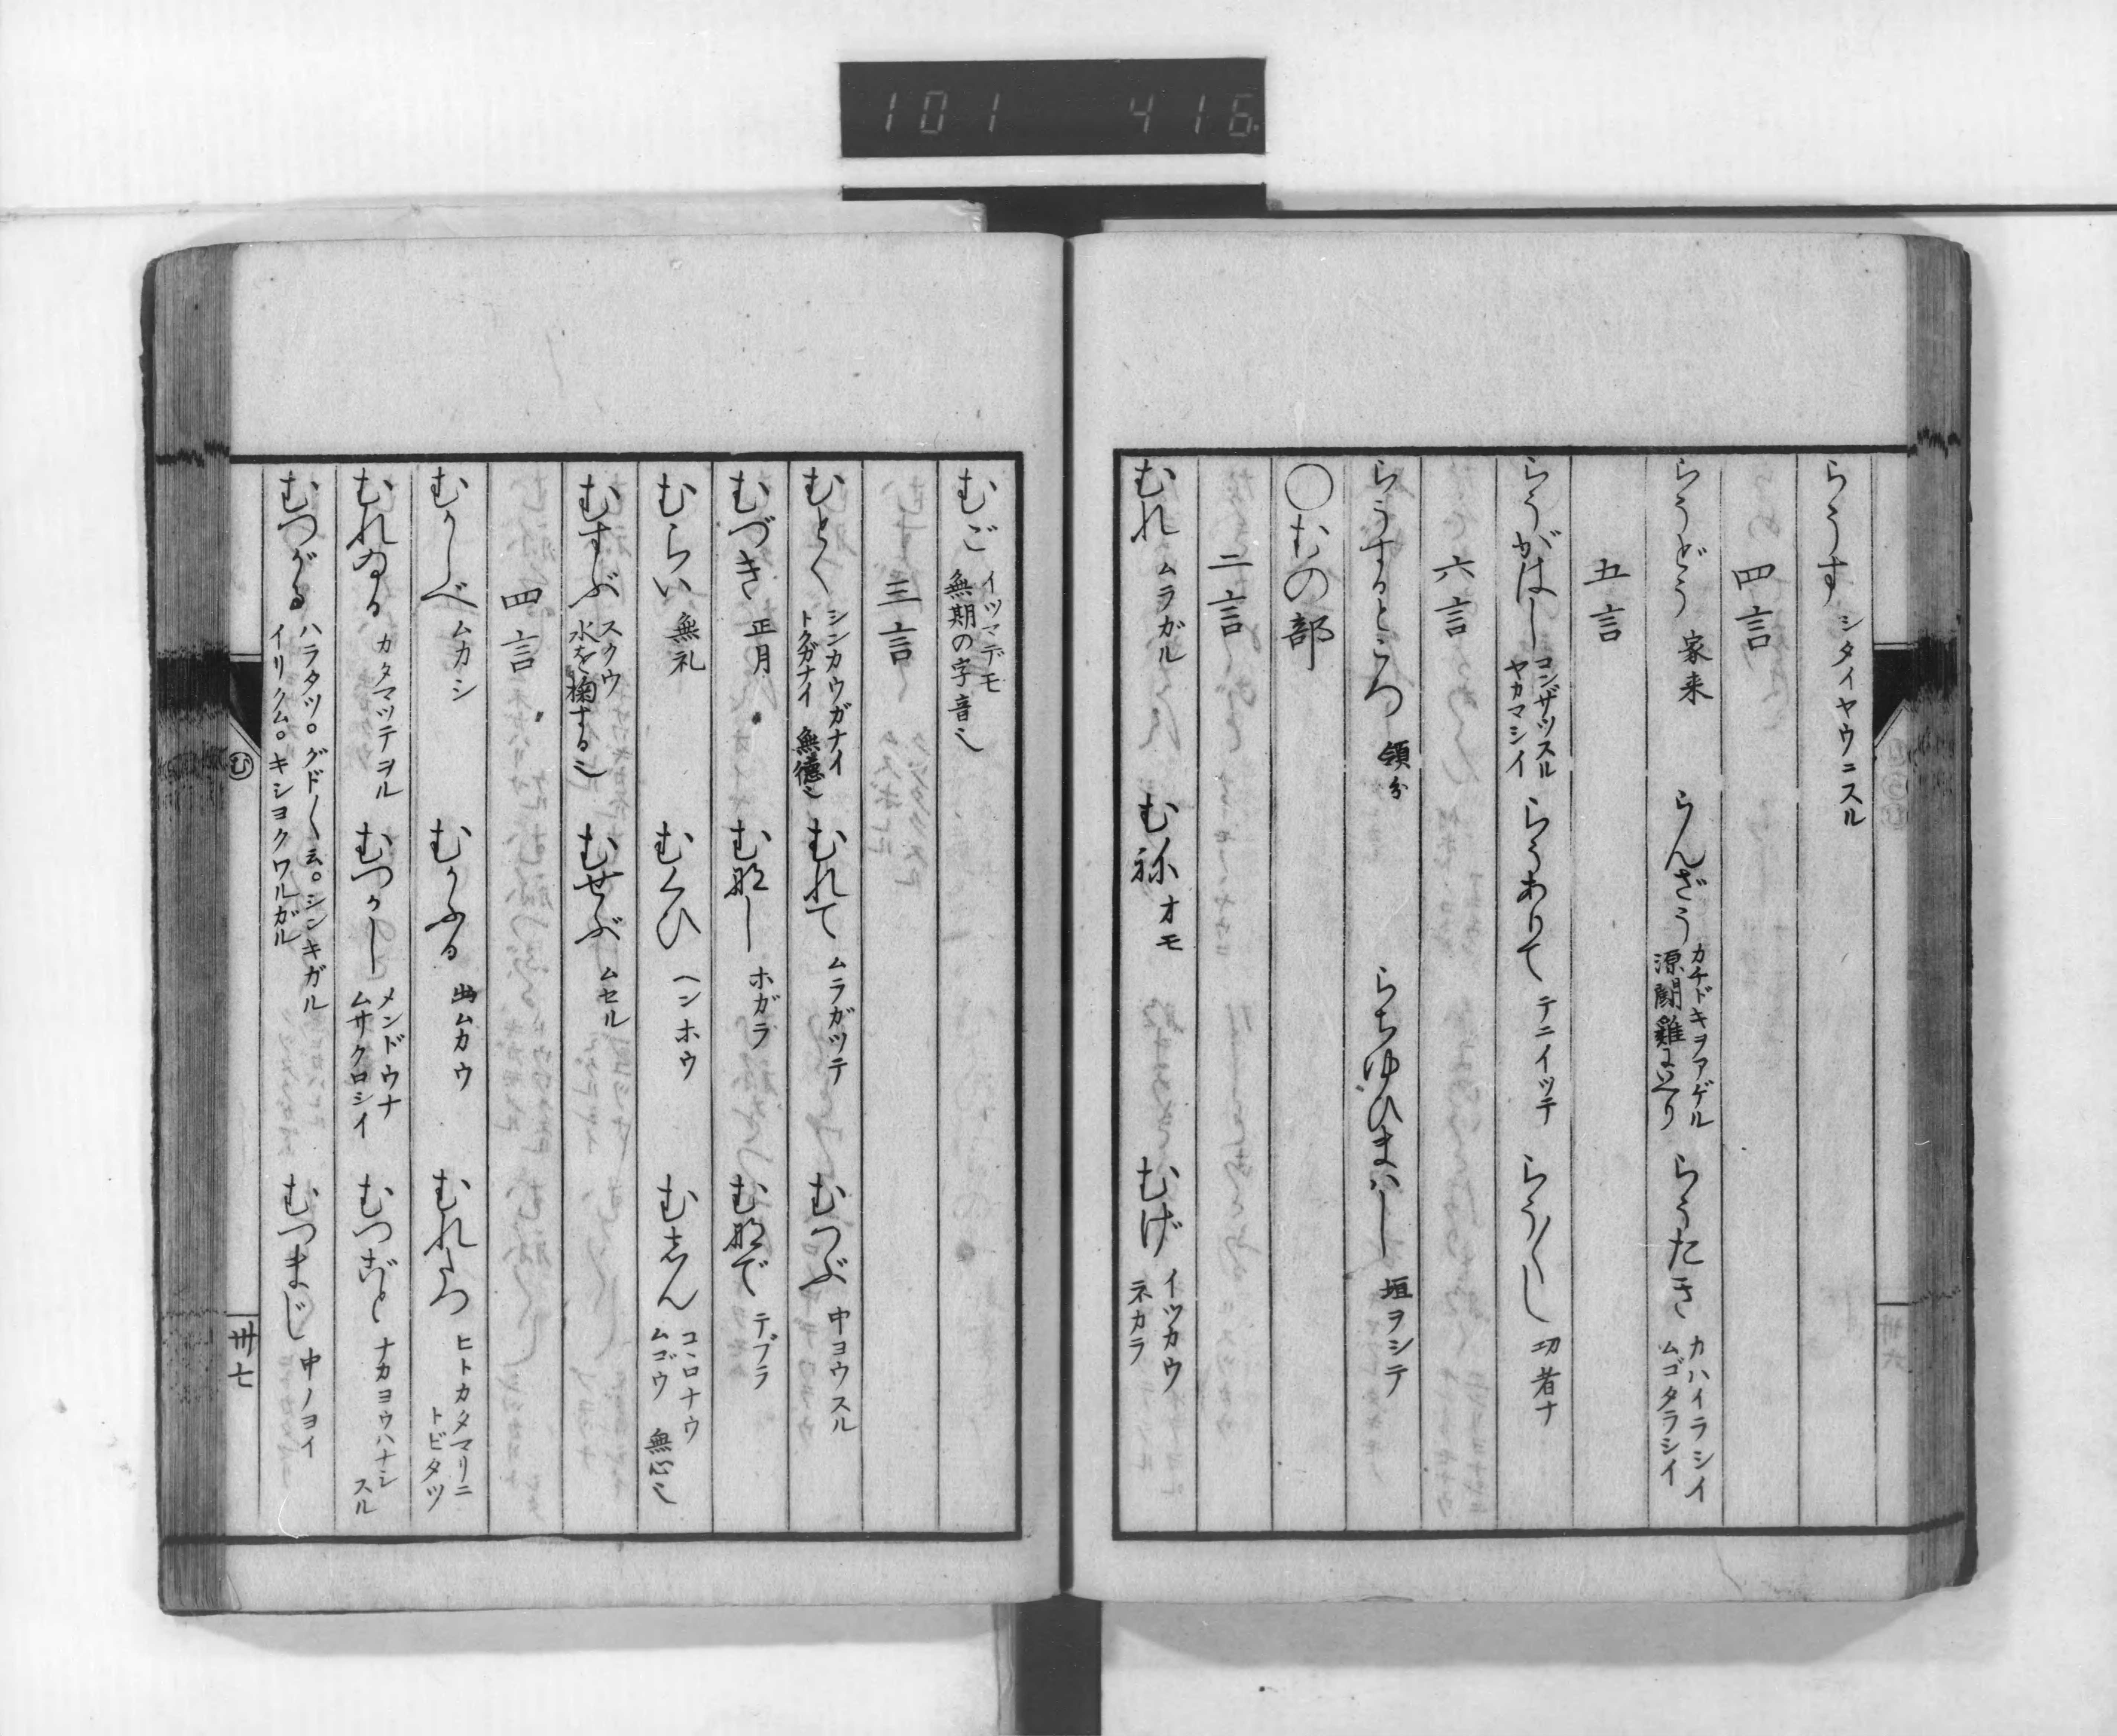 101 416
らうす シタイヤウニスル
四言
らうどう 家来 らんざう カチドキヲアゲル 源闘雞に立り らうたき カハイラシイ ムゴタラシイ
五言
らうがはし コンザツスル ヤカマシイ らうありて テニイツテ らう〳〵し 功者ナ
六言
らうするところ 領分 らちゆひまはし 垣ヲシテ
〇むの部
二言
むれ ムラガル む祢 オモ むげ イツカウ ネカラ
むご イツマデモ 無期の字音也
三言
むとく シンカウガナイ トクガナイ 無徳也 むれて ムラガツテ むつぶ 中ヨウスル
むづき 正月 む那し ホガラ む那で テブラ
むらい 無礼 むくひ ヘンホウ むしん コヽロナウ ムゴウ 無心也
むすぶ スクウ 水を掬する也 むせぶ ムセル
四言
むかしべ ムカシ むかふる 出ムカウ むれたつ ヒトカタマリニ トビタツ
むれゐる カタマツテヲル むつかし メンドウナ ムサクロシイ むつごと ナカヨウハナシ スル
むつがる ハラタツ。グド〳〵云。シンキガル イリクム。キシヨクワルガル むつまじ 中ノヨイ
む
卅七